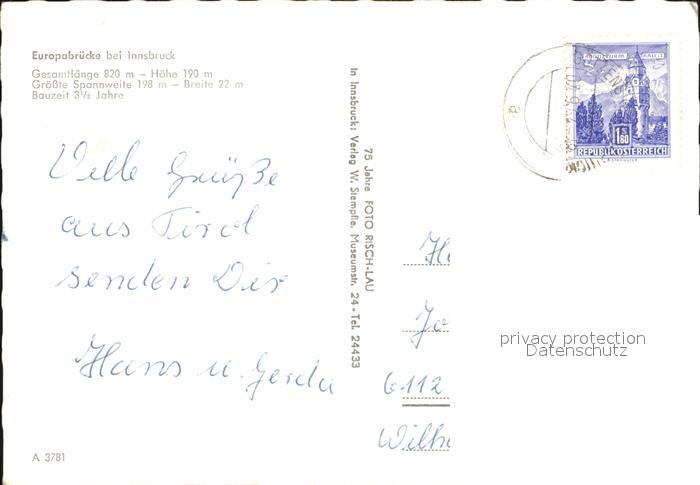 Europabrücke bei Innsbruck
Gesamtlänge 820 m — Höhe 190 m
Größte Spannweite 198 m — Breite 22 m
Bauzeit 3½ Jahre
Viele Grüße
aus Tirol
senden Dir
Hans u. Gerda
A 3781
75 Jahre FOTO RISCH-LAU
In Innsbruck: Verlag W. Stempfle, Museumstr. 24 - Tel. 24433
S 1.60
REPUBLIK ÖSTERREICH
a
6112
privacy protection
Datenschutz